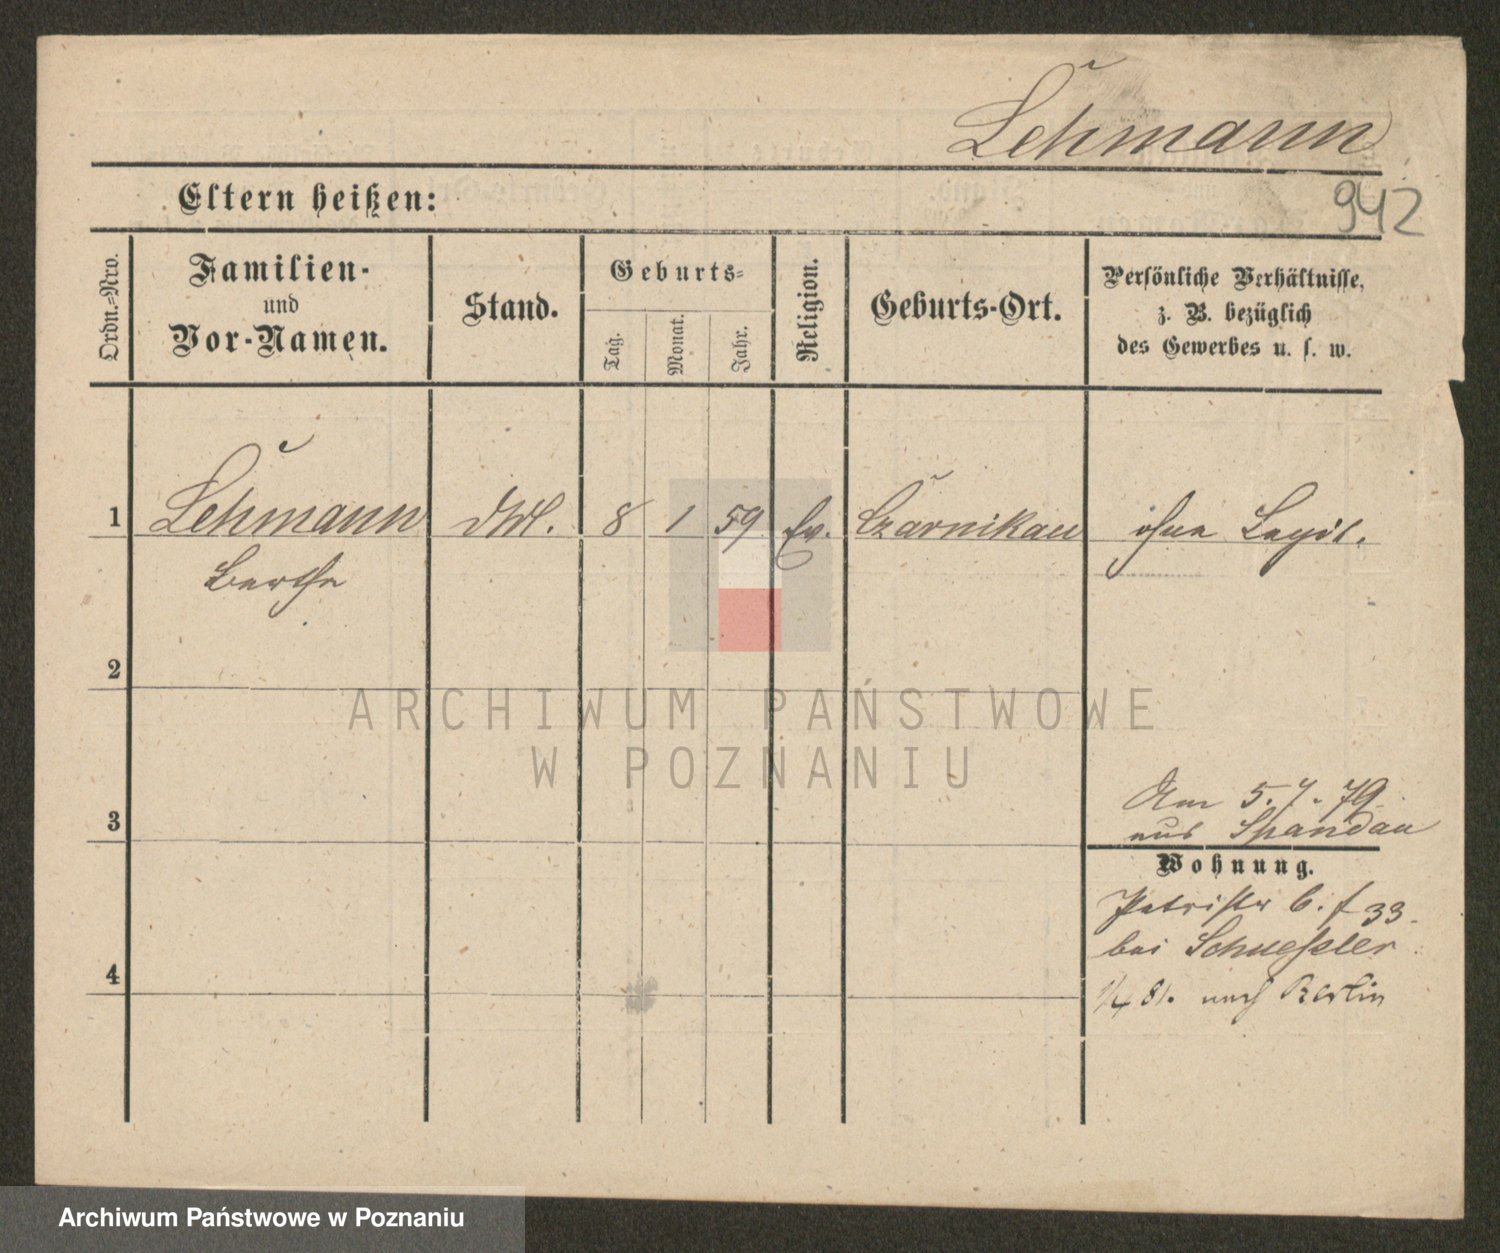 Lehmann
942
Eltern heißen:
Ordn.=Nro.
Familien-
und
Vor-Namen.
Stand.
Geburts=
Tag.
Monat.
Jahr.
Religion.
Geburts-Ort.
Persönliche Verhältnisse,
z. B. bezüglich
des Gewerbes u. s. w.
1 Lehmann 8 1 59 Ev. Czarnikau ohne Legit.
Bertha
2
ARCHIWUM PAŃSTWOWE
W POZNANIU
Am 5. 7. 79
3
aus Spandau
Wohnung.
33.
bei Schuessler
4
81. nach Berlin
Archiwum Państwowe w Poznaniu